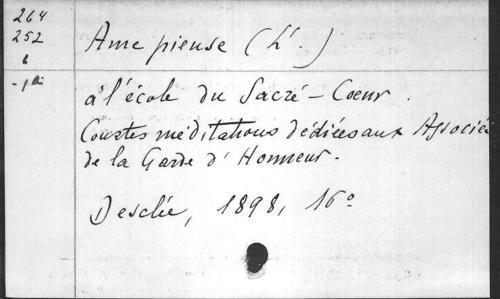 264
252
6
Ame pieuse (L'.)
à l'école du Sacré-Coeur.
Courtes méditations dédiées aux Associés
de la Garde d'Honneur.
Desclée, 1898, 16°